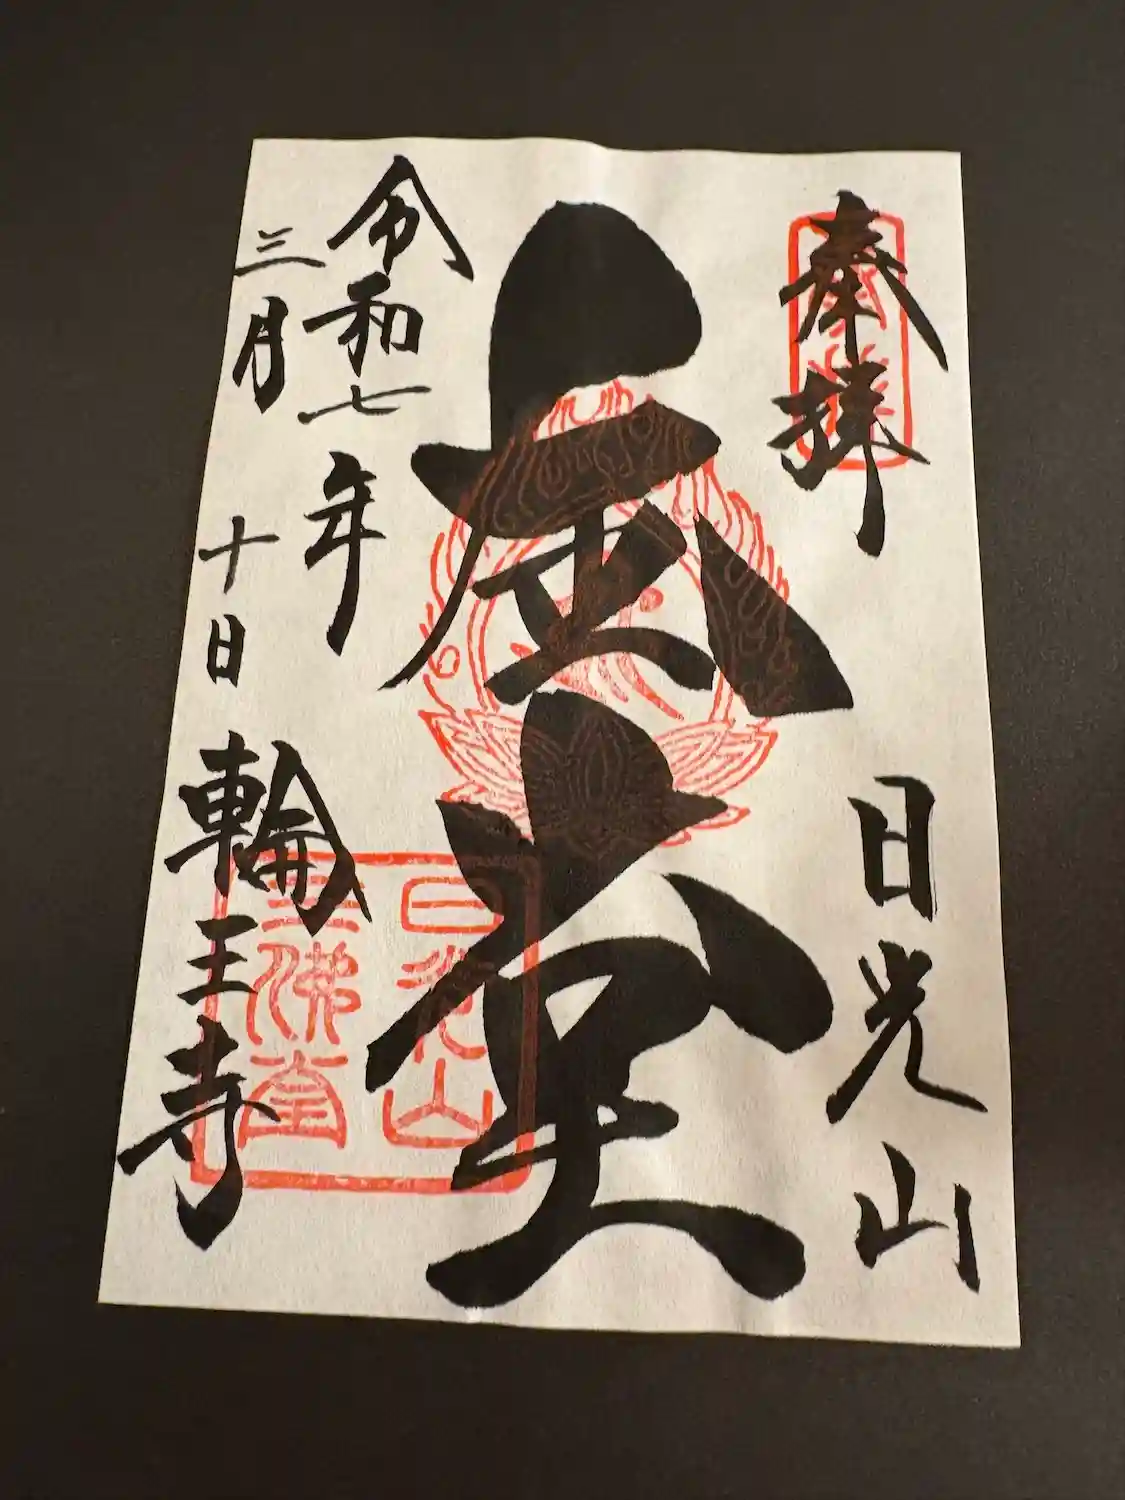 奉拝
日光山
金堂
令和七年
三月十日
輪王寺
日光山
三佛堂